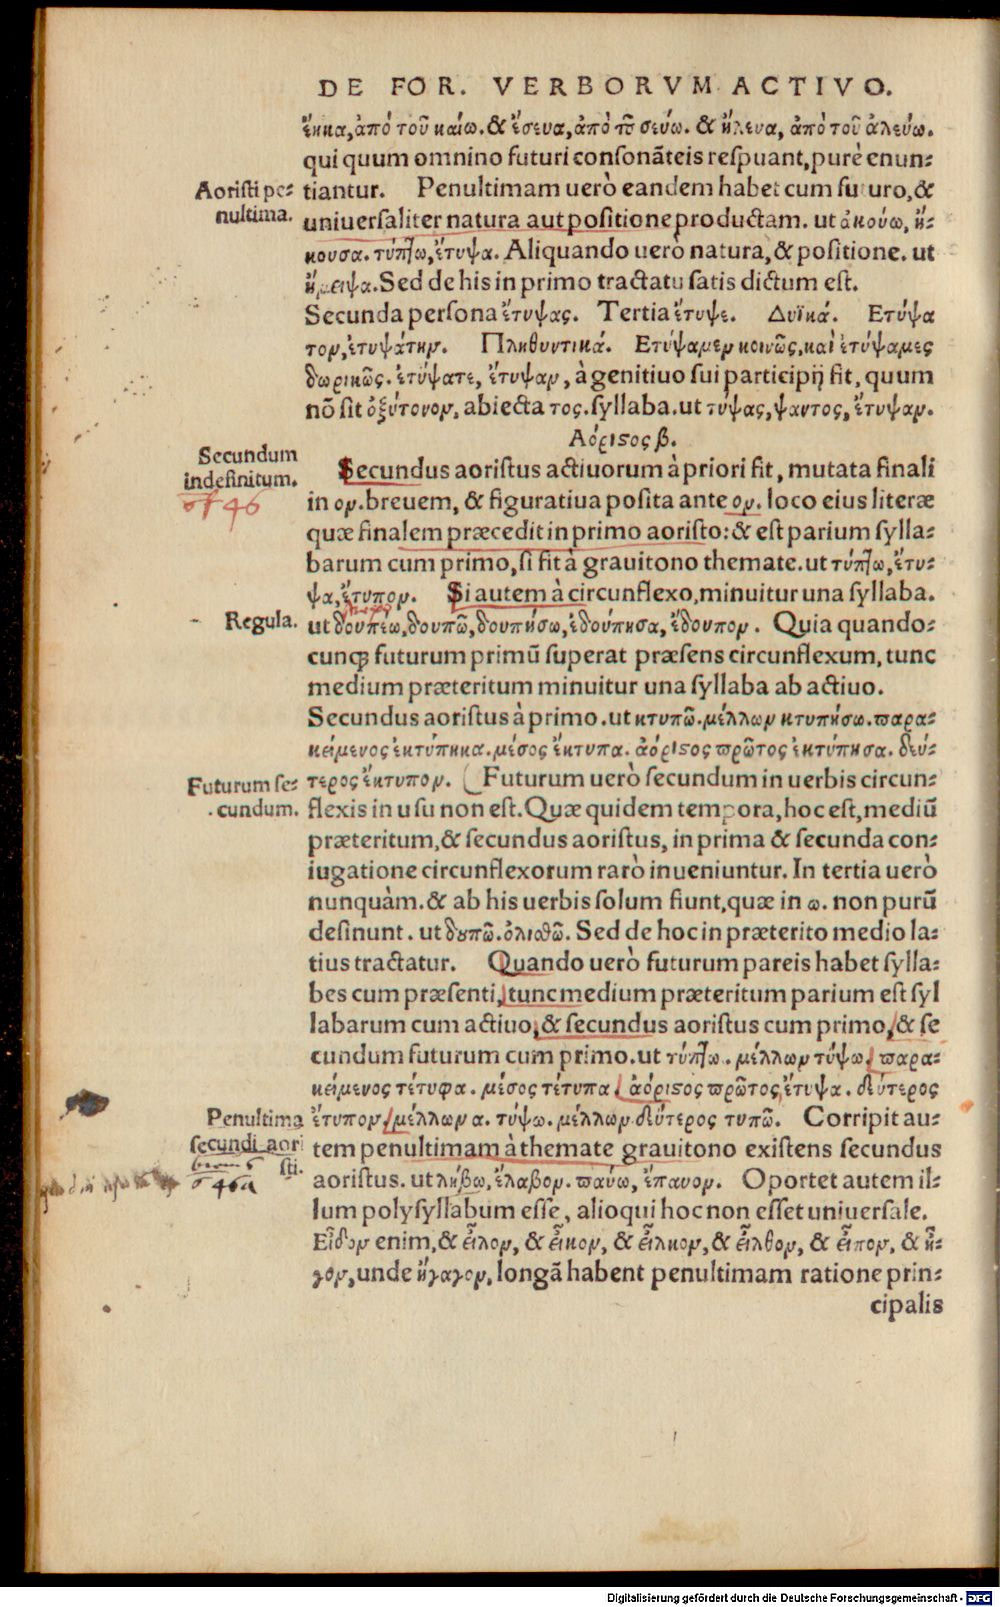 DE FOR. VERBORVM ACTIVO.
ἔκκα, ἀπὸ τοῦ καίω. & ἔσευα, ἀπὸ τοῦ σεύω. & ἤλευα, ἀπὸ τοῦ ἀλεύω.
qui quum omnino futuri consonāteis respuant, purè enun-
Aoristi pe-
nultima.
tiantur. Penultimam uerò eandem habet cum futuro, &
uniuersaliter natura aut positione productam. ut ἀκούω, ἤ-
κουσα. τύπτω, ἔτυψα. Aliquando uerò natura, & positione. ut
ἤμειψα. Sed de his in primo tractatu satis dictum est.
Secunda persona ἔτυψας. Tertia ἔτυψε. Δυϊκά. Ετύψα
τον, ἐτυψάτην. Πληθυντικά. Ετύψαμεν κοινῶς, καὶ ἐτύψαμες
δωρικῶς. ἐτύψατε, ἔτυψαν, à genitiuo sui participij fit, quum
nō sit ὀξύτονον, abiecta τος. syllaba. ut τύψας, ψαντος, ἔτυψαν.
Αόριστος β.
Secundum
indefinitum.
of 46
Secundus aoristus actiuorum à priori fit, mutata finali
in ον. breuem, & figuratiua posita ante ον. loco eius literæ
quæ finalem præcedit in primo aoristo: & est parium sylla-
barum cum primo, si fit à grauitono themate. ut τύπτω, ἔτυ-
ψα, ἔτυπον. Si autem à circunflexo, minuitur una syllaba.
Regula.
ut δουπέω, δουπῶ, δουπήσω, ἐδούπησα, ἔδουπον. Quia quando-
cunq; futurum primū superat præsens circunflexum, tunc
medium præteritum minuitur una syllaba ab actiuo.
Secundus aoristus à primo. ut κτυπῶ. μέλλων κτυπήσω. παρα-
κείμενος ἐκτύπηκα. μέσος ἔκτυπα. ἀόριστος πρῶτος ἐκτύπησα. δεύ-
Futurum se-
cundum.
τερος ἔκτυπον. Futurum uerò secundum in uerbis circun-
flexis in usu non est. Quæ quidem tempora, hoc est, mediū
præteritum, & secundus aoristus, in prima & secunda con-
iugatione circunflexorum rarò inueniuntur. In tertia uerò
nunquàm. & ab his uerbis solum fiunt, quæ in ω. non purū
desinunt. ut δουπῶ. ὀλισθῶ. Sed de hoc in præterito medio la-
tius tractatur. Quando uerò futurum pareis habet sylla-
bes cum præsenti, tunc medium præteritum parium est syl
labarum cum actiuo, & secundus aoristus cum primo, & se
cundum futurum cum primo. ut τύπτω. μέλλων τύψω. παρα-
κείμενος τέτυφα. μέσος τέτυπα. ἀόριστος πρῶτος, ἔτυψα. δεύτερος
Penultima
secundi aori
sti.
46a
ἔτυπον. μέλλων α. τύψω. μέλλων δεύτερος τυπῶ. Corripit au-
tem penultimam à themate grauitono existens secundus
aoristus. ut λήβω, ἔλαβον. παύω, ἔπαυον. Oportet autem il-
lum polysyllabum esse, alioqui hoc non esset uniuersale.
Εἶδον enim, & εἷλον, & εἶκον, & εἷλκον, & εἷλθον, & εἶπον, & ἦ-
γον, unde ἤγαγον, longā habent penultimam ratione prin-
cipalis
Digitalisierung gefördert durch die Deutsche Forschungsgemeinschaft - DFG